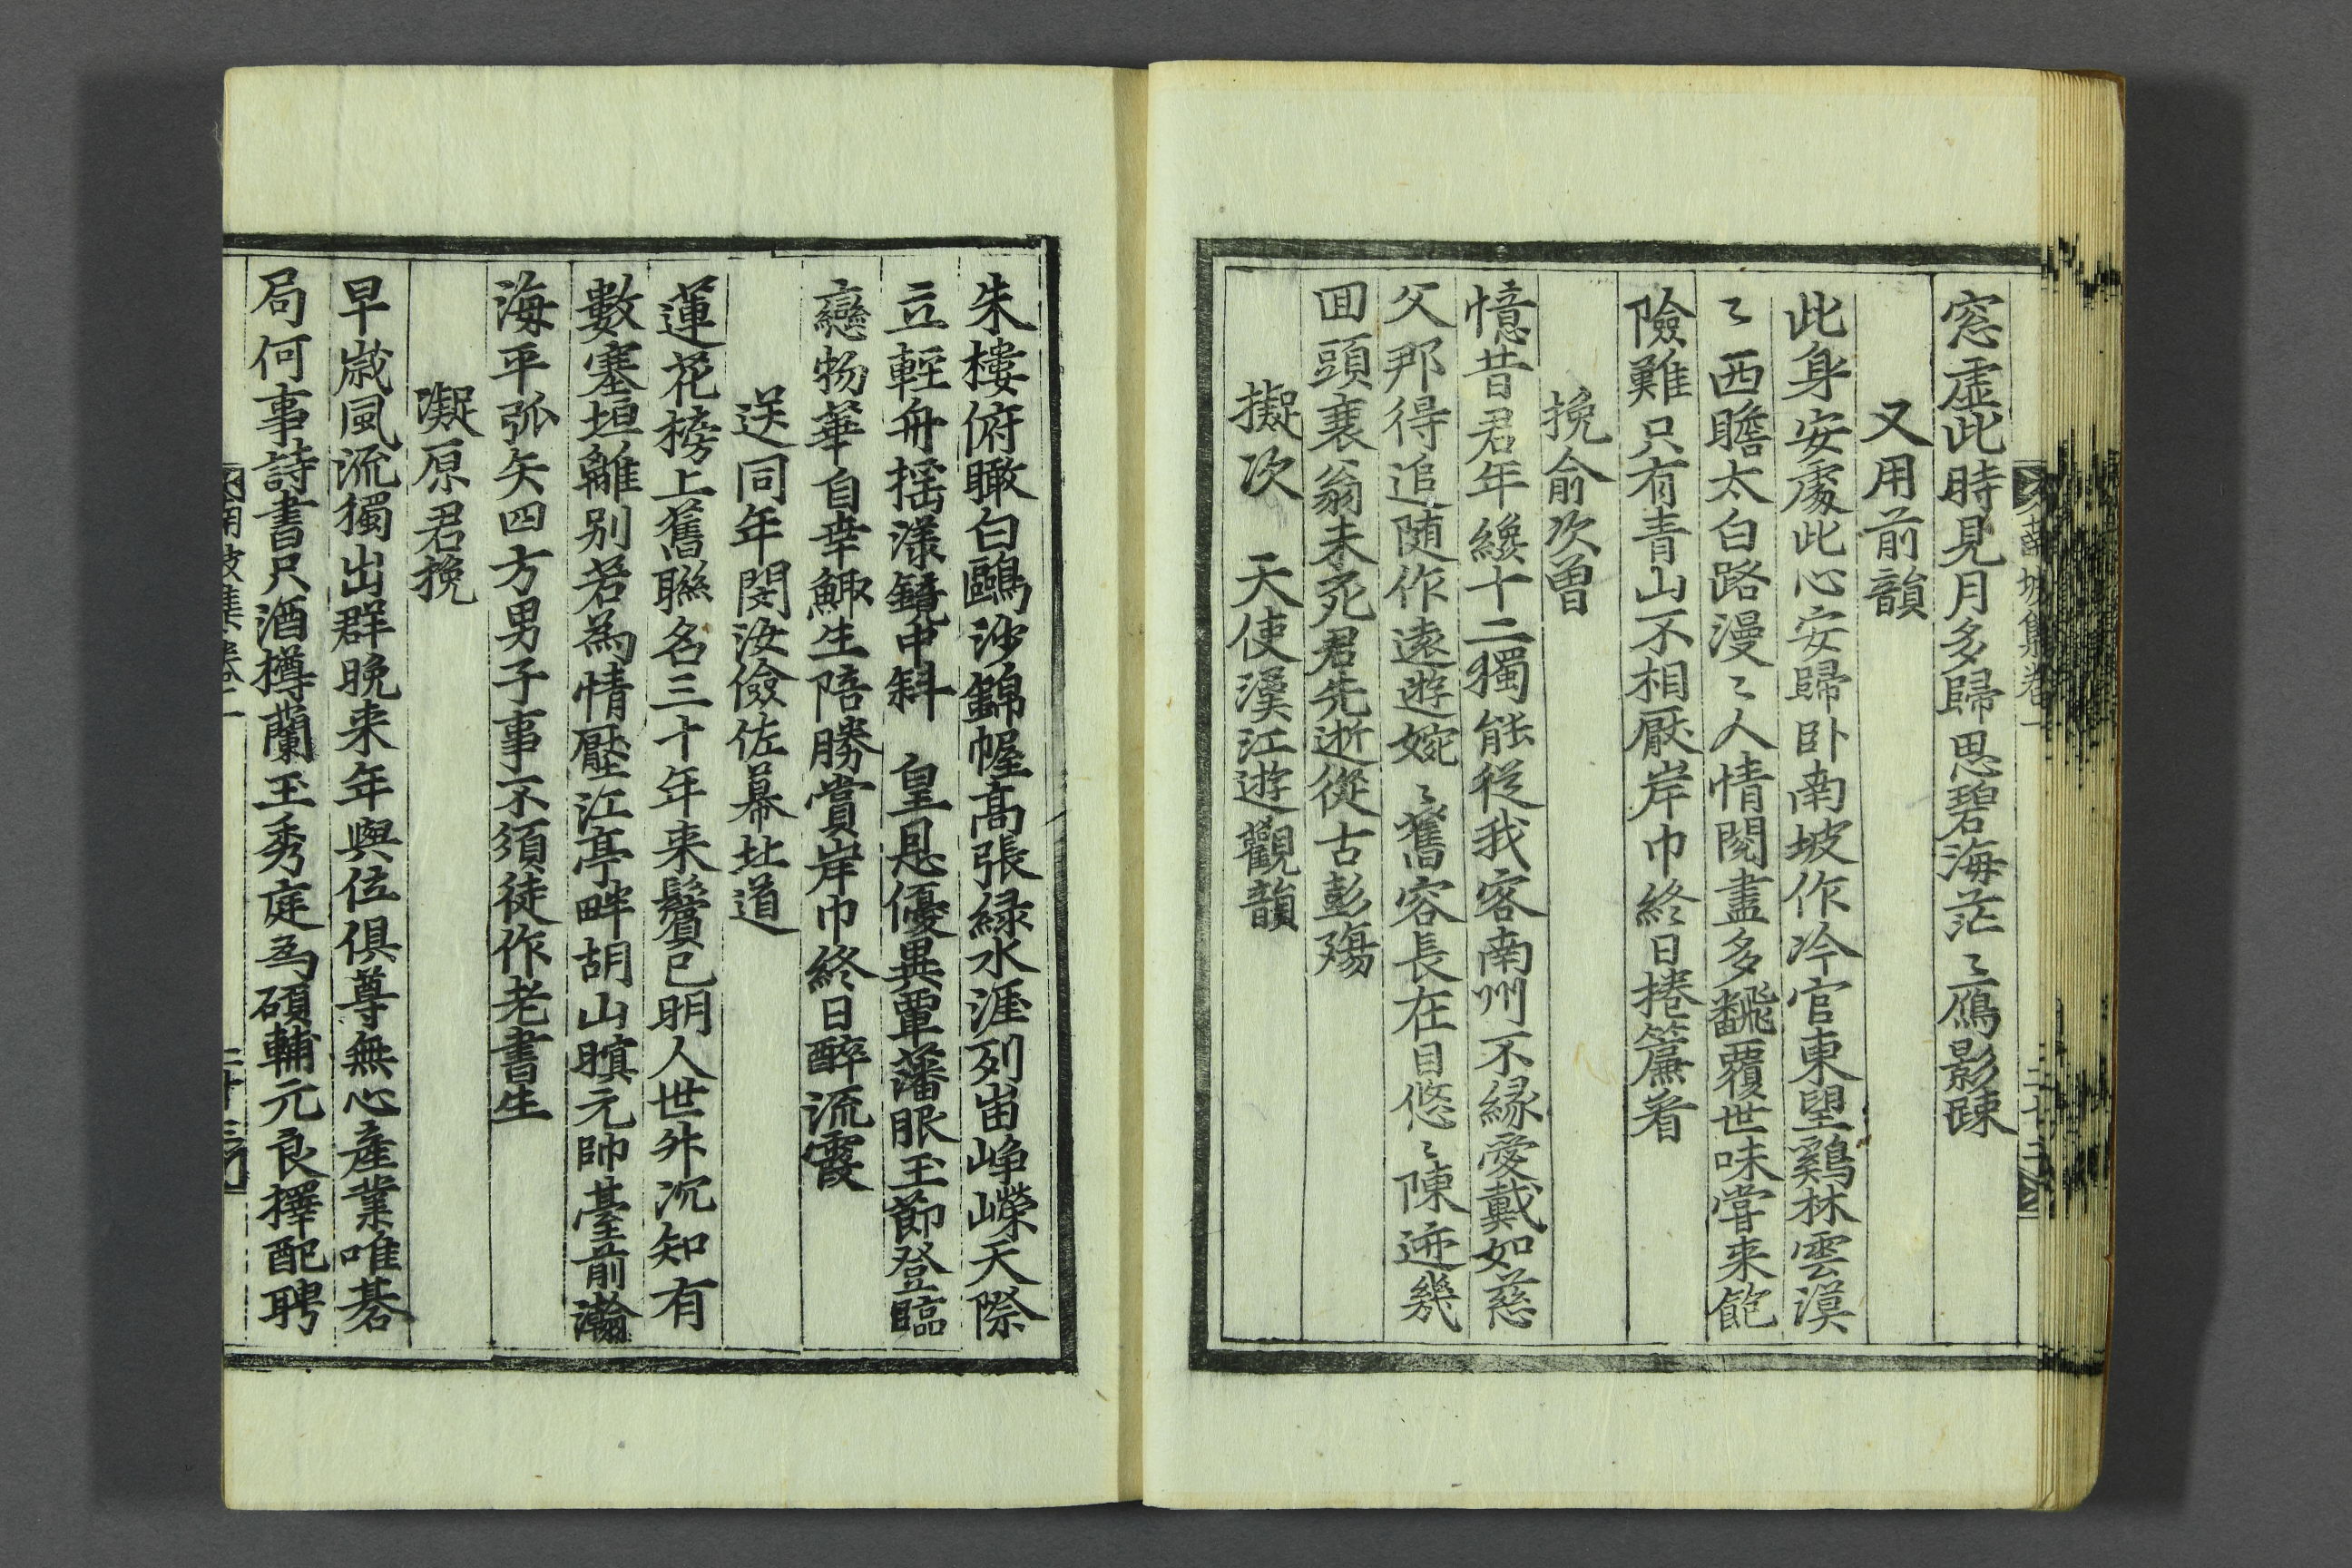 窓虛此時見月多歸思碧海茫〻鴈影踈
又用前韻
此身安處此心安歸卧南坡作冷官東望鷄林雲漠
〻西瞻太白路漫〻人情閱盡多飜覆世味甞来飽
險難只有青山不相厭岸巾終日捲簾看
挽俞次曾
憶昔君年纔十二獨能従我客南州不縁愛戴如慈
父那得追随作遠遊婉〻舊容長在目悠〻陳迹幾
回頭衰翁未死君先逝從古彭殤
擬次　天使漢江遊觀韻
朱樓俯瞰白鷗沙錦幄高張緑水涯列岫崢嶸天際
立輕舟揺漾鏡中斜　皇恩優異覃藩服玉節登臨
戀物華自幸鯫生陪勝賞岸巾終日醉流霞
送同年閔汝儉佐幕北道
蓮花榜上舊聯名三十年来鬢已明人世外沉知有
數塞垣離别若為情壓江亭畔胡山暝元帥臺前瀚
海平弧矢四方男子事不須徒作老書生
凝原君挽
早歳風流獨出群晩来年與位俱尊無心產業唯碁
局何事詩書只酒樽蘭玉秀庭為碩輔元良擇配聘
南坡集卷一
二十三